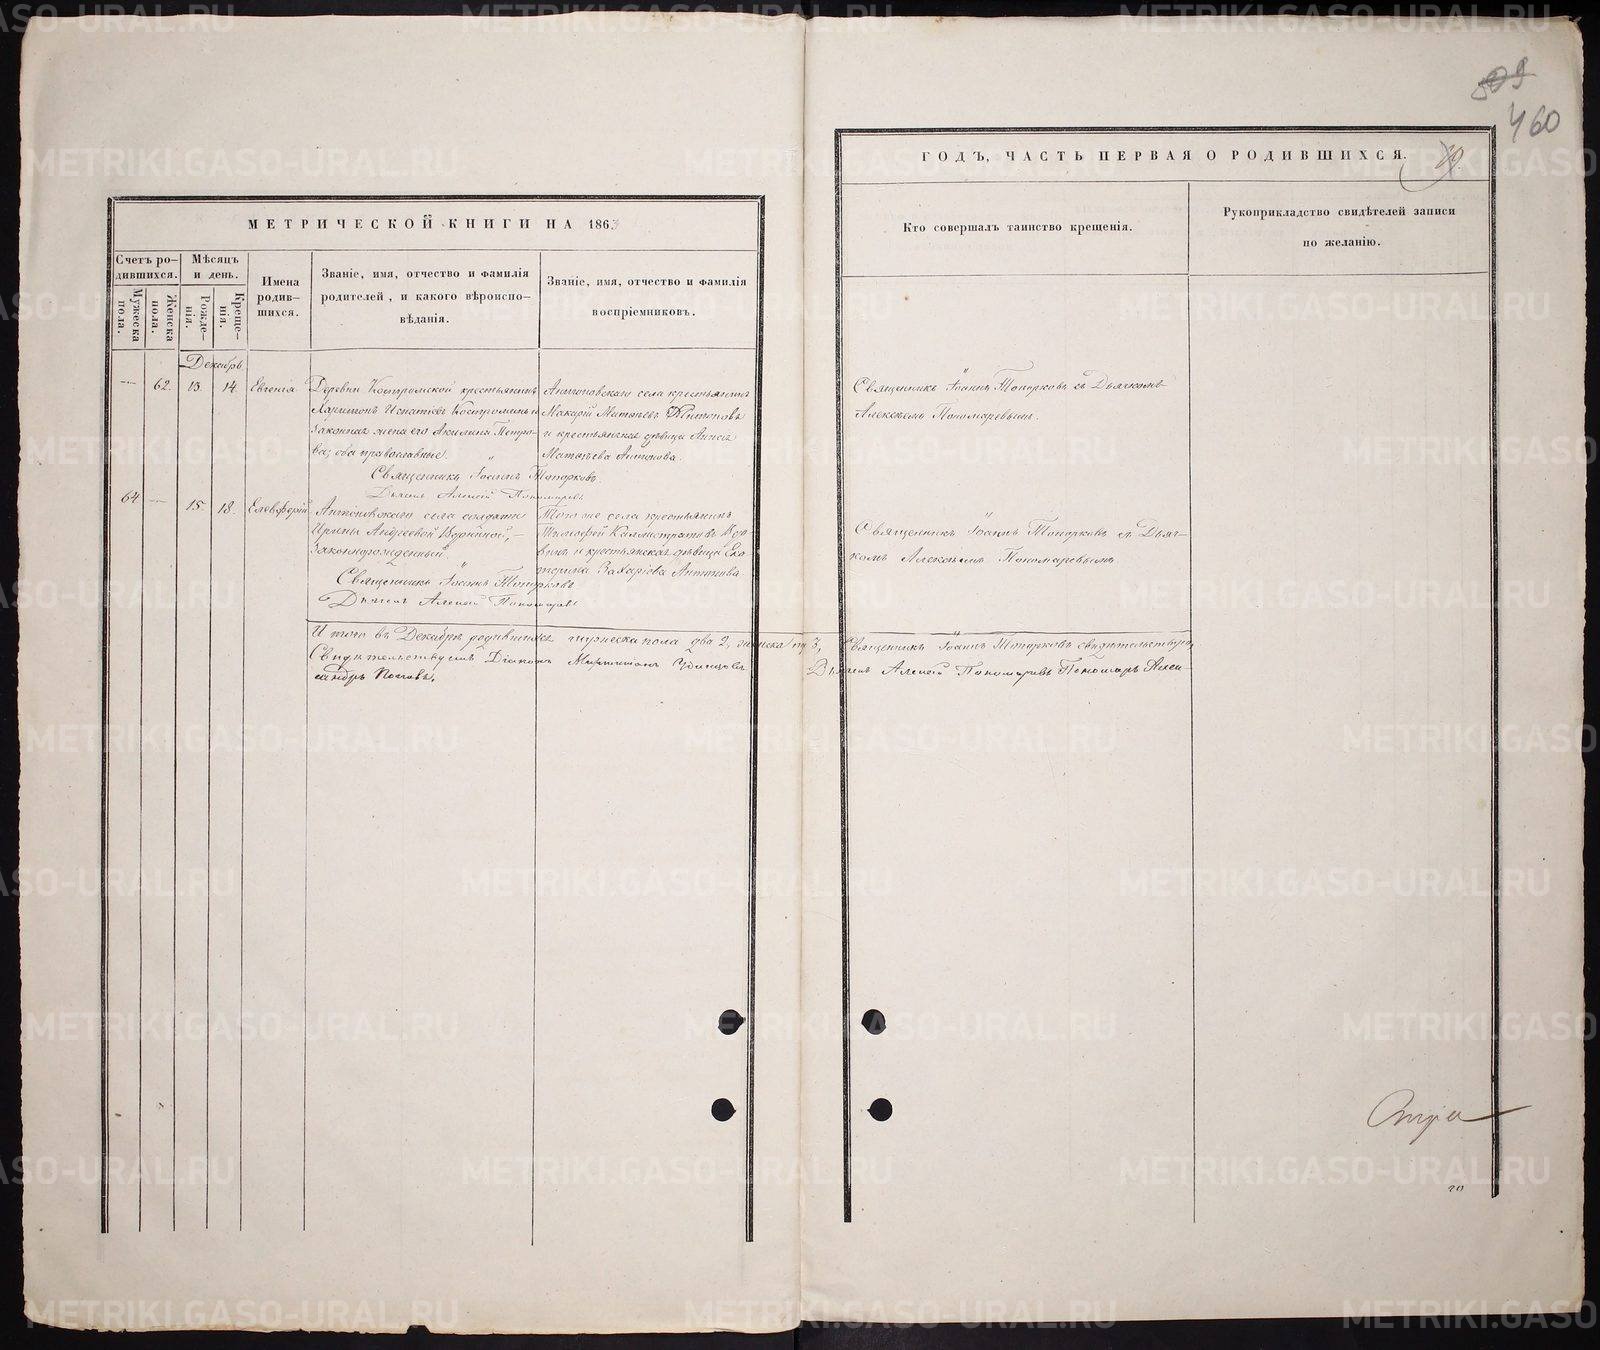 МЕТРИЧЕСКОЙ КНИГИ НА 1863
ГОДЪ, ЧАСТЬ ПЕРВАЯ О РОДИВШИХСЯ.
460
Счетъ ро-
дившихся.
Мужеска
пола.
Женска
пола.
Мѣсяцъ
и день.
Рожде-
нія.
Креще-
нія.
Имена
родив-
шихся.
Званіе, имя, отчество и фамилія
родителей, и какого вѣроиспо-
вѣданія.
Званіе, имя, отчество и фамилія
воспріемниковъ.
Кто совершалъ таинство крещенія.
Рукоприкладство свидѣтелей записи
по желанію.
Декабрь
— 62. 13. 14. Евгенія
Деревни Костромской крестьянинъ
Харитонъ Игнатьевъ Костроминъ и
законная жена его Акилина Петро-
ва; оба православные.
Антоновскаго села крестьянинъ
Макарій Матвѣевъ Антоновъ
и крестьянская дѣвица Анна
Матвѣева Антонова.
Священникъ Іоаннъ Топорковъ съ Дьячкомъ
Алексѣемъ Пономаревымъ.
Священникъ Іоаннъ Топорковъ.
Дьячекъ Алексѣй Пономаревъ
64 — 15. 18. Елевферій
Антоновскаго села солдатки
Ирины Андреевой
незаконнорожденный
Того же села крестьянинъ
Тимофей Каллистратовъ
и крестьянская дѣвица Ека
терина Захарова Антонова
Священникъ Іоаннъ Топорковъ съ Дьяч-
комъ Алексѣемъ Пономаревымъ
Священникъ Іоаннъ Топорковъ
Дьячекъ Алексѣй Пономаревъ
Итого въ Декабрѣ родившихся мужеска пола два 2, женска три 3,
Священникъ Іоаннъ Топорковъ
Свидѣтельствуемъ Діаконъ
Дьячекъ Алексѣй Пономаревъ Пономарь Алек-
сандръ Поповъ.
METRIKI.GASO-URAL.RU